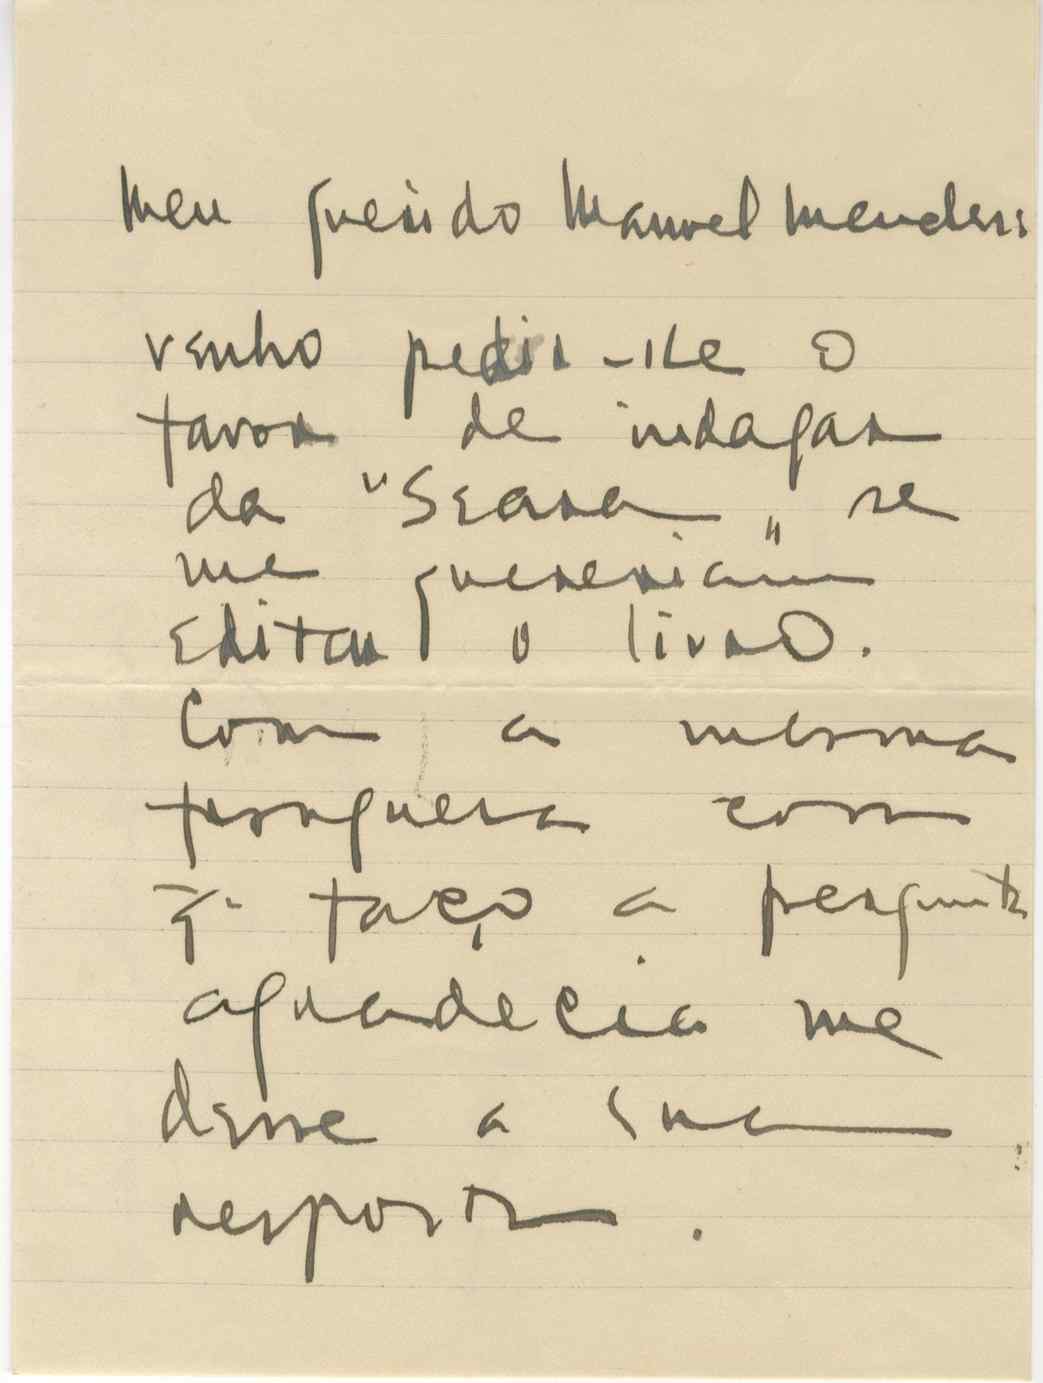 Meu querido Manuel Mendes:
venho pedir-lhe o
favor de indagar
da "Seara" se
me quereriam
editar o livro.
Com a mesma
franqueza com
q̄. faço a pergunta
agradecia me
desse a sua
resposta.